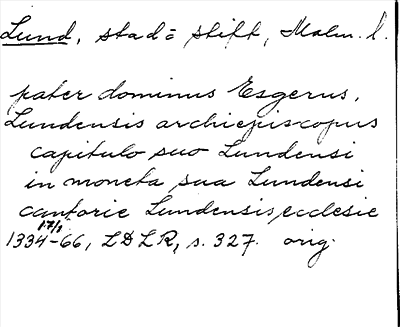 Lund, stad o stift, Malm. l.
pater dominus Esgerus,
Lundensis archiepiscopus
capitulo suo Lundensi
in moneta sua Lundensi
cantorie Lundensis ecclesie
17/1
1334-66, LDLR, s. 327. orig.